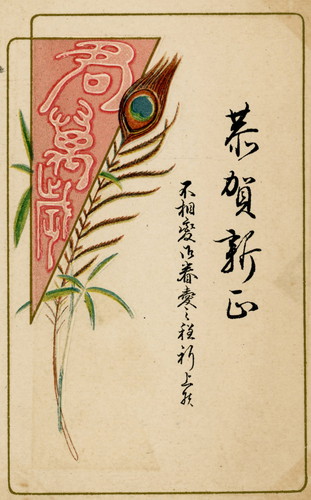 恭賀新正
不相変御眷愛之程祈上候
君萬歳